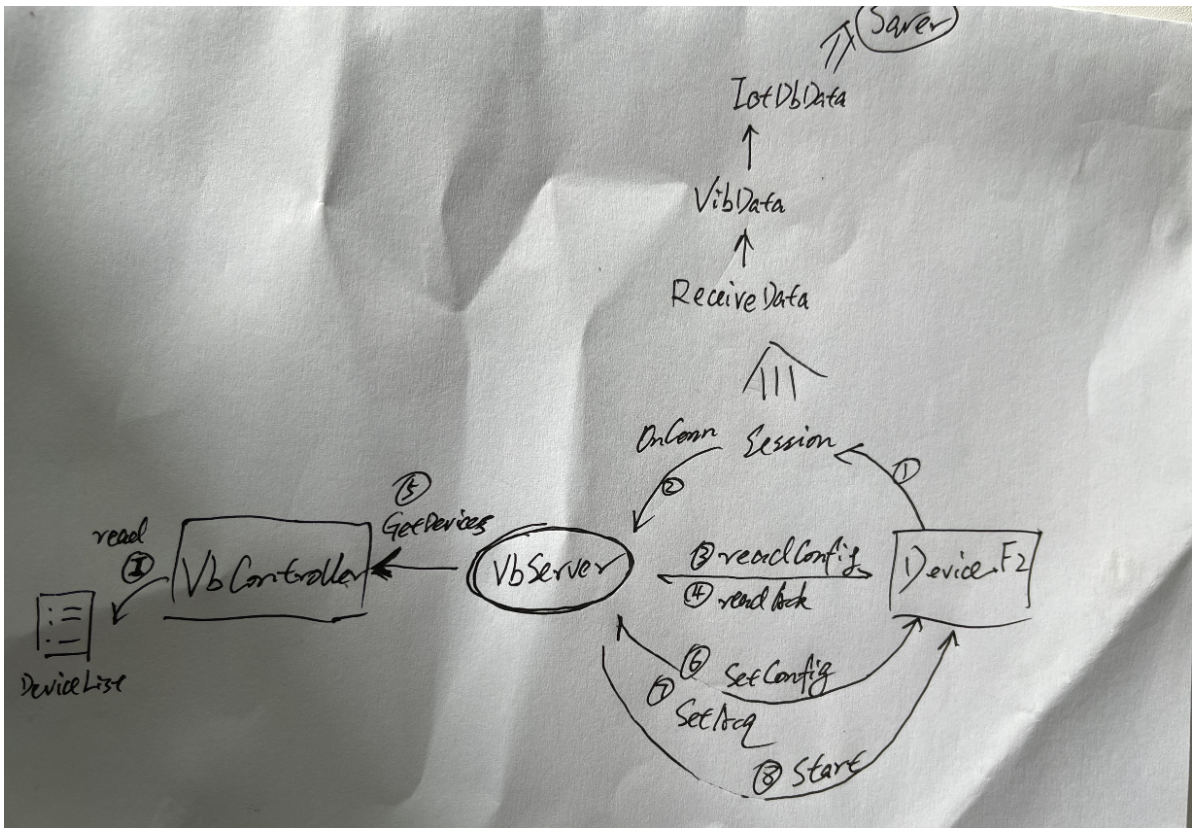 Saver
IotDbData
VibData
ReceiveData
OnConn
Session
①
②
⑤
GetDevices
read
VbController
VbServer
③ readConfig
④ readAck
Device F2
DeviceList
⑥ SetConfig
⑦ SetAcq
⑧ Start